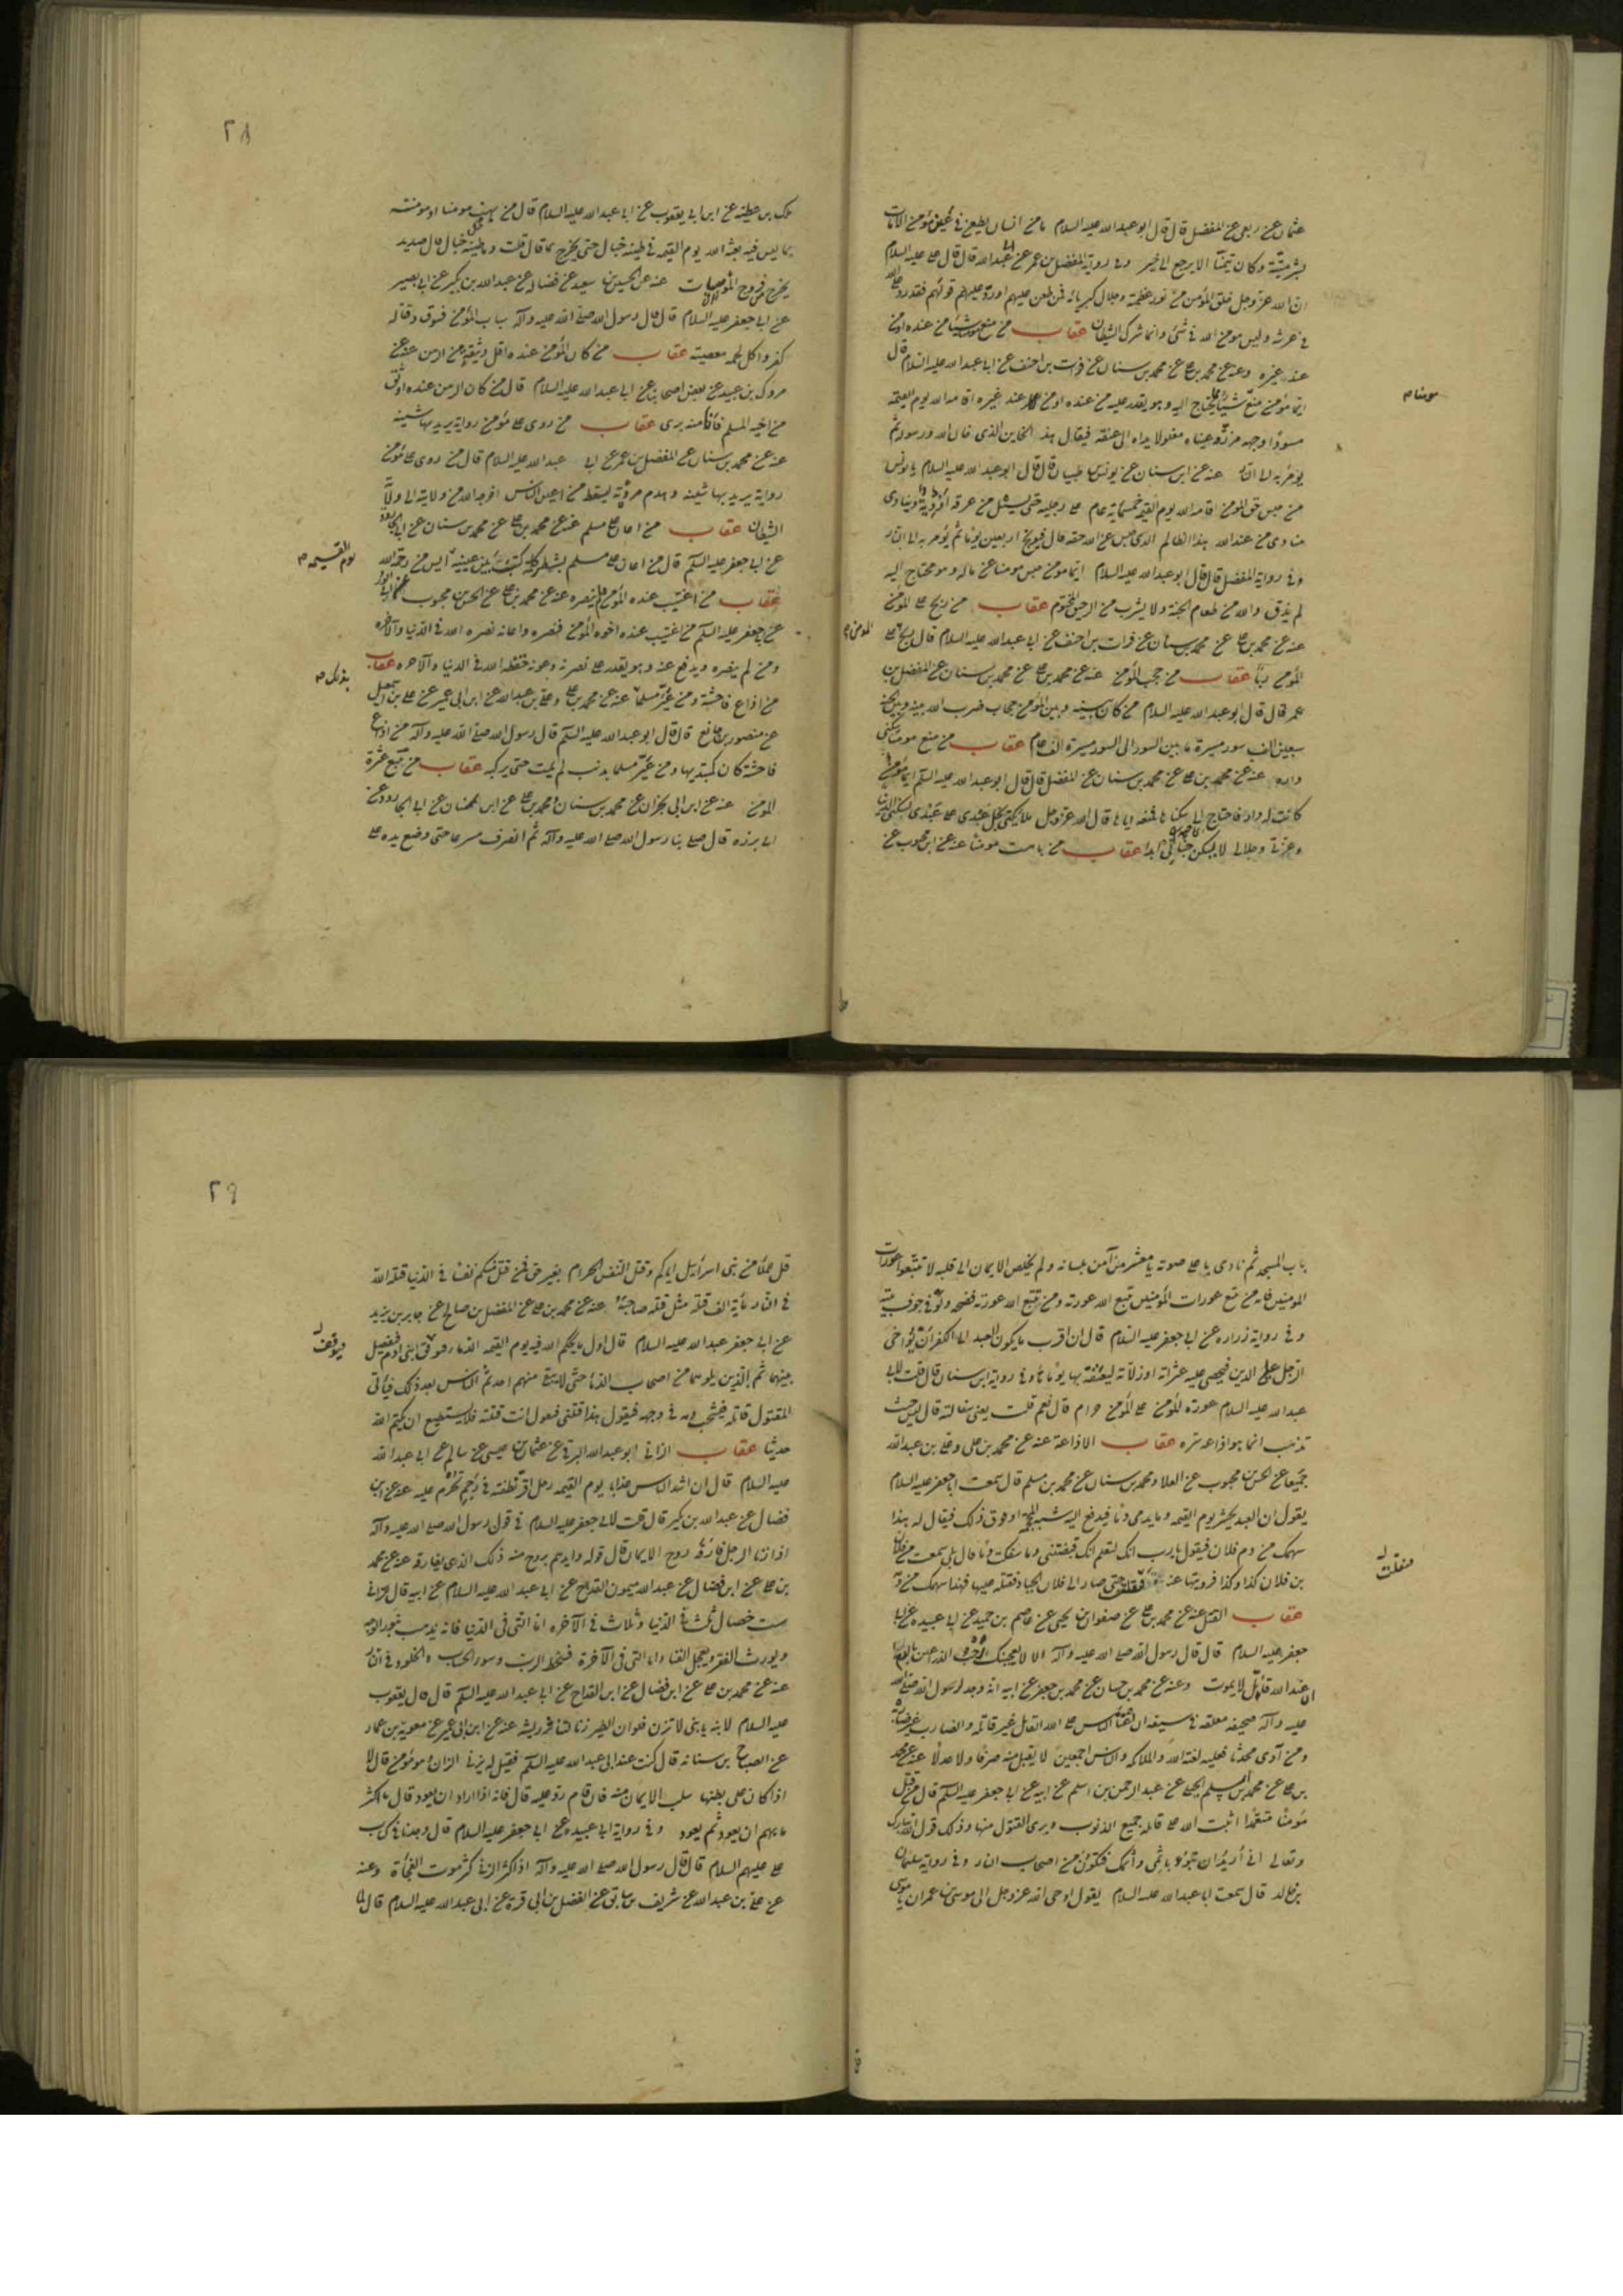 عثمان عن ربعي عن المفضل قال قال ابو عبد الله عليه السلام ما من انسان يطعن في عين مؤمن الا مات
بشر ميتة وكان يتمنا الا يرجع الى خير وفي رواية المفضل بن عمر عن ابي عبد الله قال قال عليه السلام
ان الله عز وجل خلق المؤمن من نور عظمته وجلال كبريائه فمن طعن عليهم او رد عليهم قولهم فقد رد على الله
في عرشه وليس هو من الله في شئ وانما شرك الشيطان عقاب من منع مومنا شيئا من عنده او من
عند غيره وعنه عن محمد بن علي عن محمد بن سنان عن فرات بن احنف عن ابي عبد الله عليه السلام قال
ايما مؤمن منع شيئا مما يحتاج اليه وهو يقدر عليه من عنده او من عند غيره اقامه الله يوم القيمه
مومنا م
مسودا وجهه مزرقة عيناه مغلولا يداه الى عنقه فيقال هذا الخاين الذى خان الله ورسوله ثم
يؤمر به الى النار عنه عن ابن سنان عن يونس بن ظبيان قال قال ابو عبد الله عليه السلام يا يونس
من حبس حق المومن اقامه الله يوم القيمه خمسمائة عام على رجليه حتى يسيل من عرقه اودية وينادى
مناد من عند الله هذا الظالم الذى حبس عن الله حقه قال فيوبخ اربعين يوما ثم يؤمر به الى النار
وفي رواية المفضل قال قال ابو عبد الله عليه السلام ايما مؤمن حبس مومنا عن ماله وهو محتاج اليه
لم يذق والله من طعام الجنة ولا يشرب من الرحيق المختوم عقاب من ربح على المؤمن
عنه عن محمد بن علي عن محمد بن سنان عن فرات بن احنف عن ابي عبد الله عليه السلام قال ربح على
المؤمن م
المؤمن ربا عقاب من حجب المؤمن عنه عن محمد بن علي عن محمد بن سنان عن المفضل بن
عمر قال قال ابو عبد الله عليه السلام من كان بينه وبين المؤمن حجاب ضرب الله بينه وبين الجنة
سبعين الف سور مسيرة ما بين السور الى السور مسيرة الف عام عقاب من منع مومنا سكنى
داره عنه عن محمد بن علي عن محمد بن سنان عن المفضل قال قال ابو عبد الله عليه السلم ايما مؤمن
كانت له دار فاحتاج الى سكناها فمنعه اياها قال الله عز وجل ملائكتي بخل عبدى على عبدى بسكنى الدنيا
وعزتي وجلالي لا يسكن جناني ابدا عقاب من باهت مومنا عنه عن ابن محبوب عن
٢٨
ملك بن عطيه عن ابن ابي يعفور عن ابي عبد الله عليه السلام قال من بهت مومنا او مومنته
بما ليس فيه بعثه الله يوم القيمه في طينة خبال حتى يخرج مما قال قلت وما طينة خبال قال صديد
يخرج من فروج المومسات عنه عن الحسين بن سعيد عن فضاله عن عبد الله بن بكير عن ابي بصير
عن ابي جعفر عليه السلام قال قال رسول الله صلى الله عليه وآله سباب المؤمن فسوق وقتاله
كفر واكل لحمه معصيته عقاب من كان المؤمن عنده اقل وثيقة من الرهن عنه عن
مروك بن عبيد عن بعض اصحابنا عن ابي عبد الله عليه السلام قال من كان الرهن عنده اوثق
من اخيه المسلم فانا منه برى عقاب من روى على مؤمن رواية يريد بها شينه
عنه عن محمد بن سنان عن المفضل بن عمر عن ابي عبد الله عليه السلام قال من روى على مؤمن
رواية يريد بها شينه وهدم مروته ليسقط من اعين الناس اخرجه الله من ولايته الى ولاية
الشيطان عقاب من اعان على مسلم عنه عن محمد بن علي عن محمد بن سنان عن ابي الجارود
عن ابي جعفر عليه السلم قال من اعان على مسلم بشطر كلمة كتب بين عينيه ايس من رحمة الله
يوم القسيمه م
عقاب من اغتيب عنده المؤمن فلم ينصره عنه عن محمد بن علي عن الحسن بن محبوب عن ابي الورد
عن ابي جعفر عليه السلم من اغتيب عنده اخوه المؤمن فنصره واعانه نصره الله في الدنيا والآخره
ومن لم ينصره ويدفع عنه وهو يقدر على نصرته وعونه خفظه الله في الدنيا والآخره عقاب
بذنب م
من اذاع فاحشة ومن عير مسلما عنه عن محمد بن علي وعلي بن عبد الله عن ابن ابي عمير عن علي بن اسمعيل
عن منصور بن حازم قال قال ابو عبد الله عليه السلم قال رسول الله صلى الله عليه وآله من اذاع
فاحشة كان كمبتديها ومن عير مسلما بذنب لم يمت حتى يركبه عقاب من تتبع عثرة
المؤمن عنه عن ابن ابي نجران عن محمد بن سنان ومحمد بن علي عن ابن محسنان عن ابي الجارود عن
ابي برزه قال صلى بنا رسول الله صلى الله عليه وآله ثم انصرف مسرعا حتى وضع يده على
باب المسجد ثم نادى باعلى صوته يا معشر من آمن بلسانه ولم يخلص الايمان الى قلبه لا تتبعوا عورات
المومنين فانه من تتبع عورات المؤمنين تتبع الله عورته ومن تتبع الله عورته فضحه ولو في جوف بيته
وفي رواية زراره عن ابي جعفر عليه السلام قال ان اقرب ما يكون العبد الى الكفر ان يؤاخى
الرجل على الدين فيحصى عليه عثراته او زلاته ليعنفه بها يوما ما وفي رواية ابن سنان قال قلت لابي
عبد الله عليه السلام عورة المؤمن على المؤمن حرام قال نعم قلت يعنى سفلته قال ليس حيث
تذهب انما هو اذاعة سره عقاب الاذاعة عنه عن محمد بن علي وعلي بن عبد الله
جميعا عن الحسن بن محبوب عن العلا ومحمد بن سنان عن محمد بن مسلم قال سمعت ابا جعفر عليه السلام
يقول ان العبد يحشر يوم القيمه وما يدمى دما فيدفع اليه شبه المحجمة او فوق ذلك فيقال له هذا
سهمك من دم فلان فيقول يا رب انك لتعلم انك قبضتني وما سفكت دما قال بلى سمعت من فلان
بن فلان كذا وكذا فرويتها عنه فنقلت حتى صار الى فلان الجبار فقتله عليها فهذا سهمك من دمه
فنقلت
عقاب القتل عنه عن محمد بن علي عن صفوان بن يحيى عن عاصم بن حميد عن ابي عبيده عن ابي
جعفر عليه السلام قال قال رسول الله صلى الله عليه وآله الا لا يعجبنك رحب الذراعين بالدم
ان عند الله قاتلا لا يموت وعنه عن محمد بن حسان عن محمد بن جعفر عن ابيه انه وجد لرسول الله صلى الله
عليه وآله صحيفه معلقه في سيفه ان اعتى الناس على الله القاتل غير قاتله والضارب غير ضاربه
ومن آوى محدثا فعليه لعنة الله والملائكه والناس اجمعين لا يقبل منه صرفا ولا عدلا عنه عن محمد
بن علي عن محمد بن اسلم الجبلي عن عبد الرحمن بن اسلم عن ابيه عن ابي جعفر عليه السلم قال من قتل
مؤمنا متعمدا اثبت الله على قاتله جميع الذنوب وبرى المقتول منها وذلك قول الله تبارك
وتعالى انى أريد ان تبوء باثمى واثمك فتكون من اصحاب النار وفي رواية سليمان
بن خالد قال سمعت ابا عبد الله عليه السلام يقول اوحى الله عز وجل الى موسى بن عمران يا موسى
٢٩
قل للملأ من بنى اسرائيل اياكم وقتل النفس الحرام بغير حق فمن قتل منكم نفسا في الدنيا قتله الله
في النار مائة الف قتلة مثل قتله صاحبه عنه عن محمد بن علي عن المفضل بن صالح عن جابر بن يزيد
عن ابي جعفر عبد الله عليه السلام قال اول ما يحكم الله فيه يوم القيمه الدماء فيوقف ابنى ادم فيفصل
فيوقف
بينهما ثم الذين يلونهما من اصحاب الدماء حتى لا يبقى منهم احد ثم الناس بعد ذلك فيأتى
المقتول قاتله فيشخب دمه في وجهه فيقول هذا قتلنى فيقول انت قتلته فلا يستطيع ان يكتم الله
حديثا عقاب الزانى ابو عبد الله البرقى عن عثمان بن عيسى عن سالم عن ابي عبد الله
عليه السلام قال ان اشد الناس عذابا يوم القيمه رجل اقر نطفته في رحم تحرم عليه عنه عن ابن
فضال عن عبد الله بن بكير قال قلت لابي جعفر عليه السلام في قول رسول الله صلى الله عليه وآله
اذا زنا الرجل فارقه روح الايمان قال قوله وايدهم بروح منه ذلك الذى يفارقه عنه عن محمد
بن علي عن ابن فضال عن عبد الله بن ميمون القداح عن ابي عبد الله عليه السلام عن ابيه قال للزانى
ست خصال ثلث في الدنيا وثلاث في الآخره اما التى في الدنيا فانه يذهب بنور الوجه
ويورث الفقر ويعجل الفنا واما التى في الآخرة فسخط الرب وسوء الحساب والخلود في النار
عنه عن محمد بن علي عن ابن فضال عن ابن القداح عن ابي عبد الله عليه السلم قال قال يعقوب
عليه السلام لابنه يا بنى لا تزن فلو ان الطير زنا لتناثر ريشه عنه عن ابن ابي عمير عن معويه بن عمار
عن الصباح بن سنانه قال كنت عند ابي عبد الله عليه السلم فقيل له يزنى الزانى وهو مؤمن قال لا
اذا كان على بطنها سلب الايمان منه فان قام رد عليه قال فانه اذا اراد ان يعود قال ما اكثر
ما يهم ان يعود ثم يعود وفي رواية ابي عبيده عن ابي جعفر عليه السلام قال وجدنا في كتاب
علي عليهم السلام قال قال رسول الله صلى الله عليه وآله اذا كثر الزنى كثر موت الفجأة وعنه
عن علي بن عبد الله عن شريف بن سابق عن الفضل بن ابى قرة عن ابي عبد الله عليه السلام قال لما